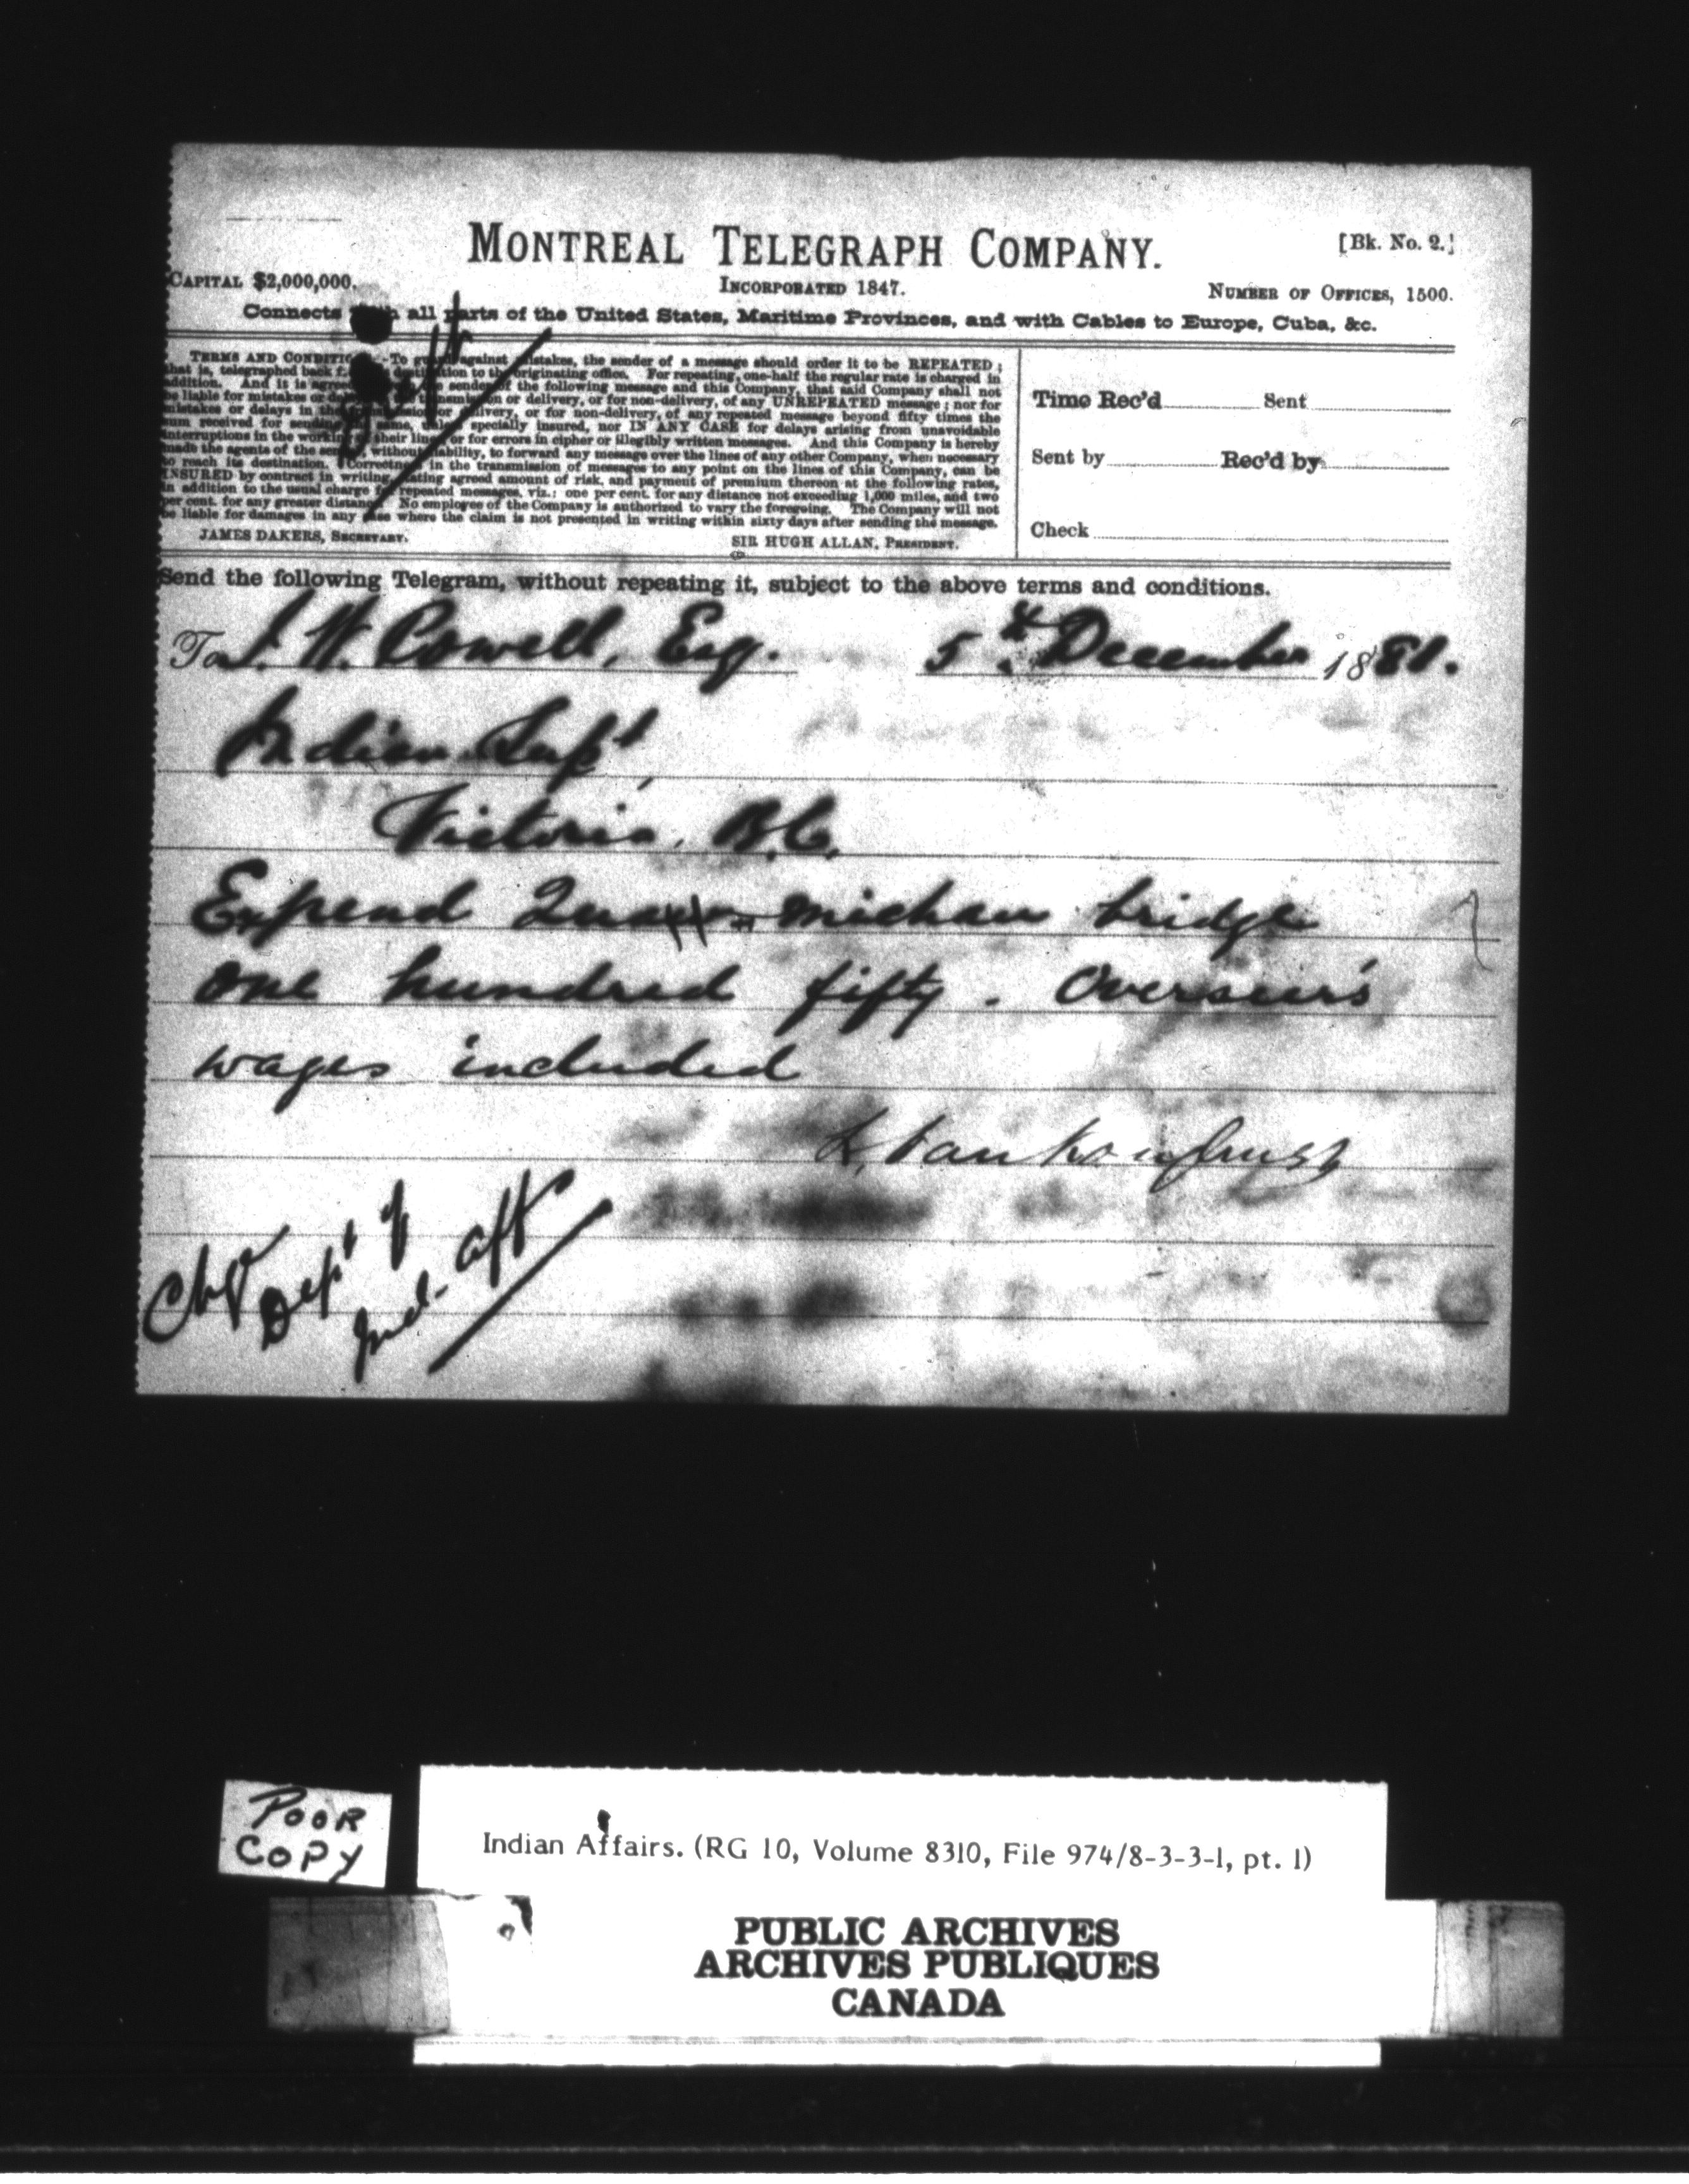 MONTREAL TELEGRAPH COMPANY.
[Bk. No. 2.]
CAPITAL $2,000,000.
INCORPORATED 1847.
NUMBER OF OFFICES, 1500.
Connects all parts of the United States, Maritime Provinces, and with Cables to Europe, Cuba, &c.
TERMS AND CONDITIO -To gu against mistakes, the sender of a message should order it to be REPEATED;
that is, telegraphed back f destination to the originating office. For repeating, one-half the regular rate is charged in
addition. And it is agree sender of the following message and this Company, that said Company shall not
be liable for mistakes or de transmission or delivery, or for non-delivery, of any UNREPEATED message; nor for
mistakes or delays in the delivery, or for non-delivery, of any repeated message beyond fifty times the
sum received for sending same, unless specially insured, nor IN ANY CASE for delays arising from unavoidable
interruptions in the working of their lines or for errors in cipher or illegibly written messages. And this Company is hereby
made the agents of the sender, without liability, to forward any message over the lines of any other Company, when necessary
to reach its destination. Correctness in the transmission of messages to any point on the lines of this Company, can be
INSURED by contract in writing, stating agreed amount of risk, and payment of premium thereon at the following rates,
in addition to the usual charge for repeated messages, viz.: one per cent. for any distance not exceeding 1,000 miles, and two
per cent. for any greater distance. No employee of the Company is authorized to vary the foregoing. The Company will not
be liable for damages in any case where the claim is not presented in writing within sixty days after sending the message.
JAMES DAKERS, SECRETARY.
SIR HUGH ALLAN, PRESIDENT.
Time Rec'd Sent
Sent by Rec'd by
Check
Send the following Telegram, without repeating it, subject to the above terms and conditions.
To I. W. Powell, Esq. 5th December 1881.
Indian Supt,
Victoria, B.C.
Expend michan bridge
one hundred fifty. Overseer's
wages included
L. Vankoughnet
Chge
Dept of
Ind. Aff
POOR
COPY
Indian Affairs. (RG 10, Volume 8310, File 974/8-3-3-1, pt. 1)
PUBLIC ARCHIVES
ARCHIVES PUBLIQUES
CANADA